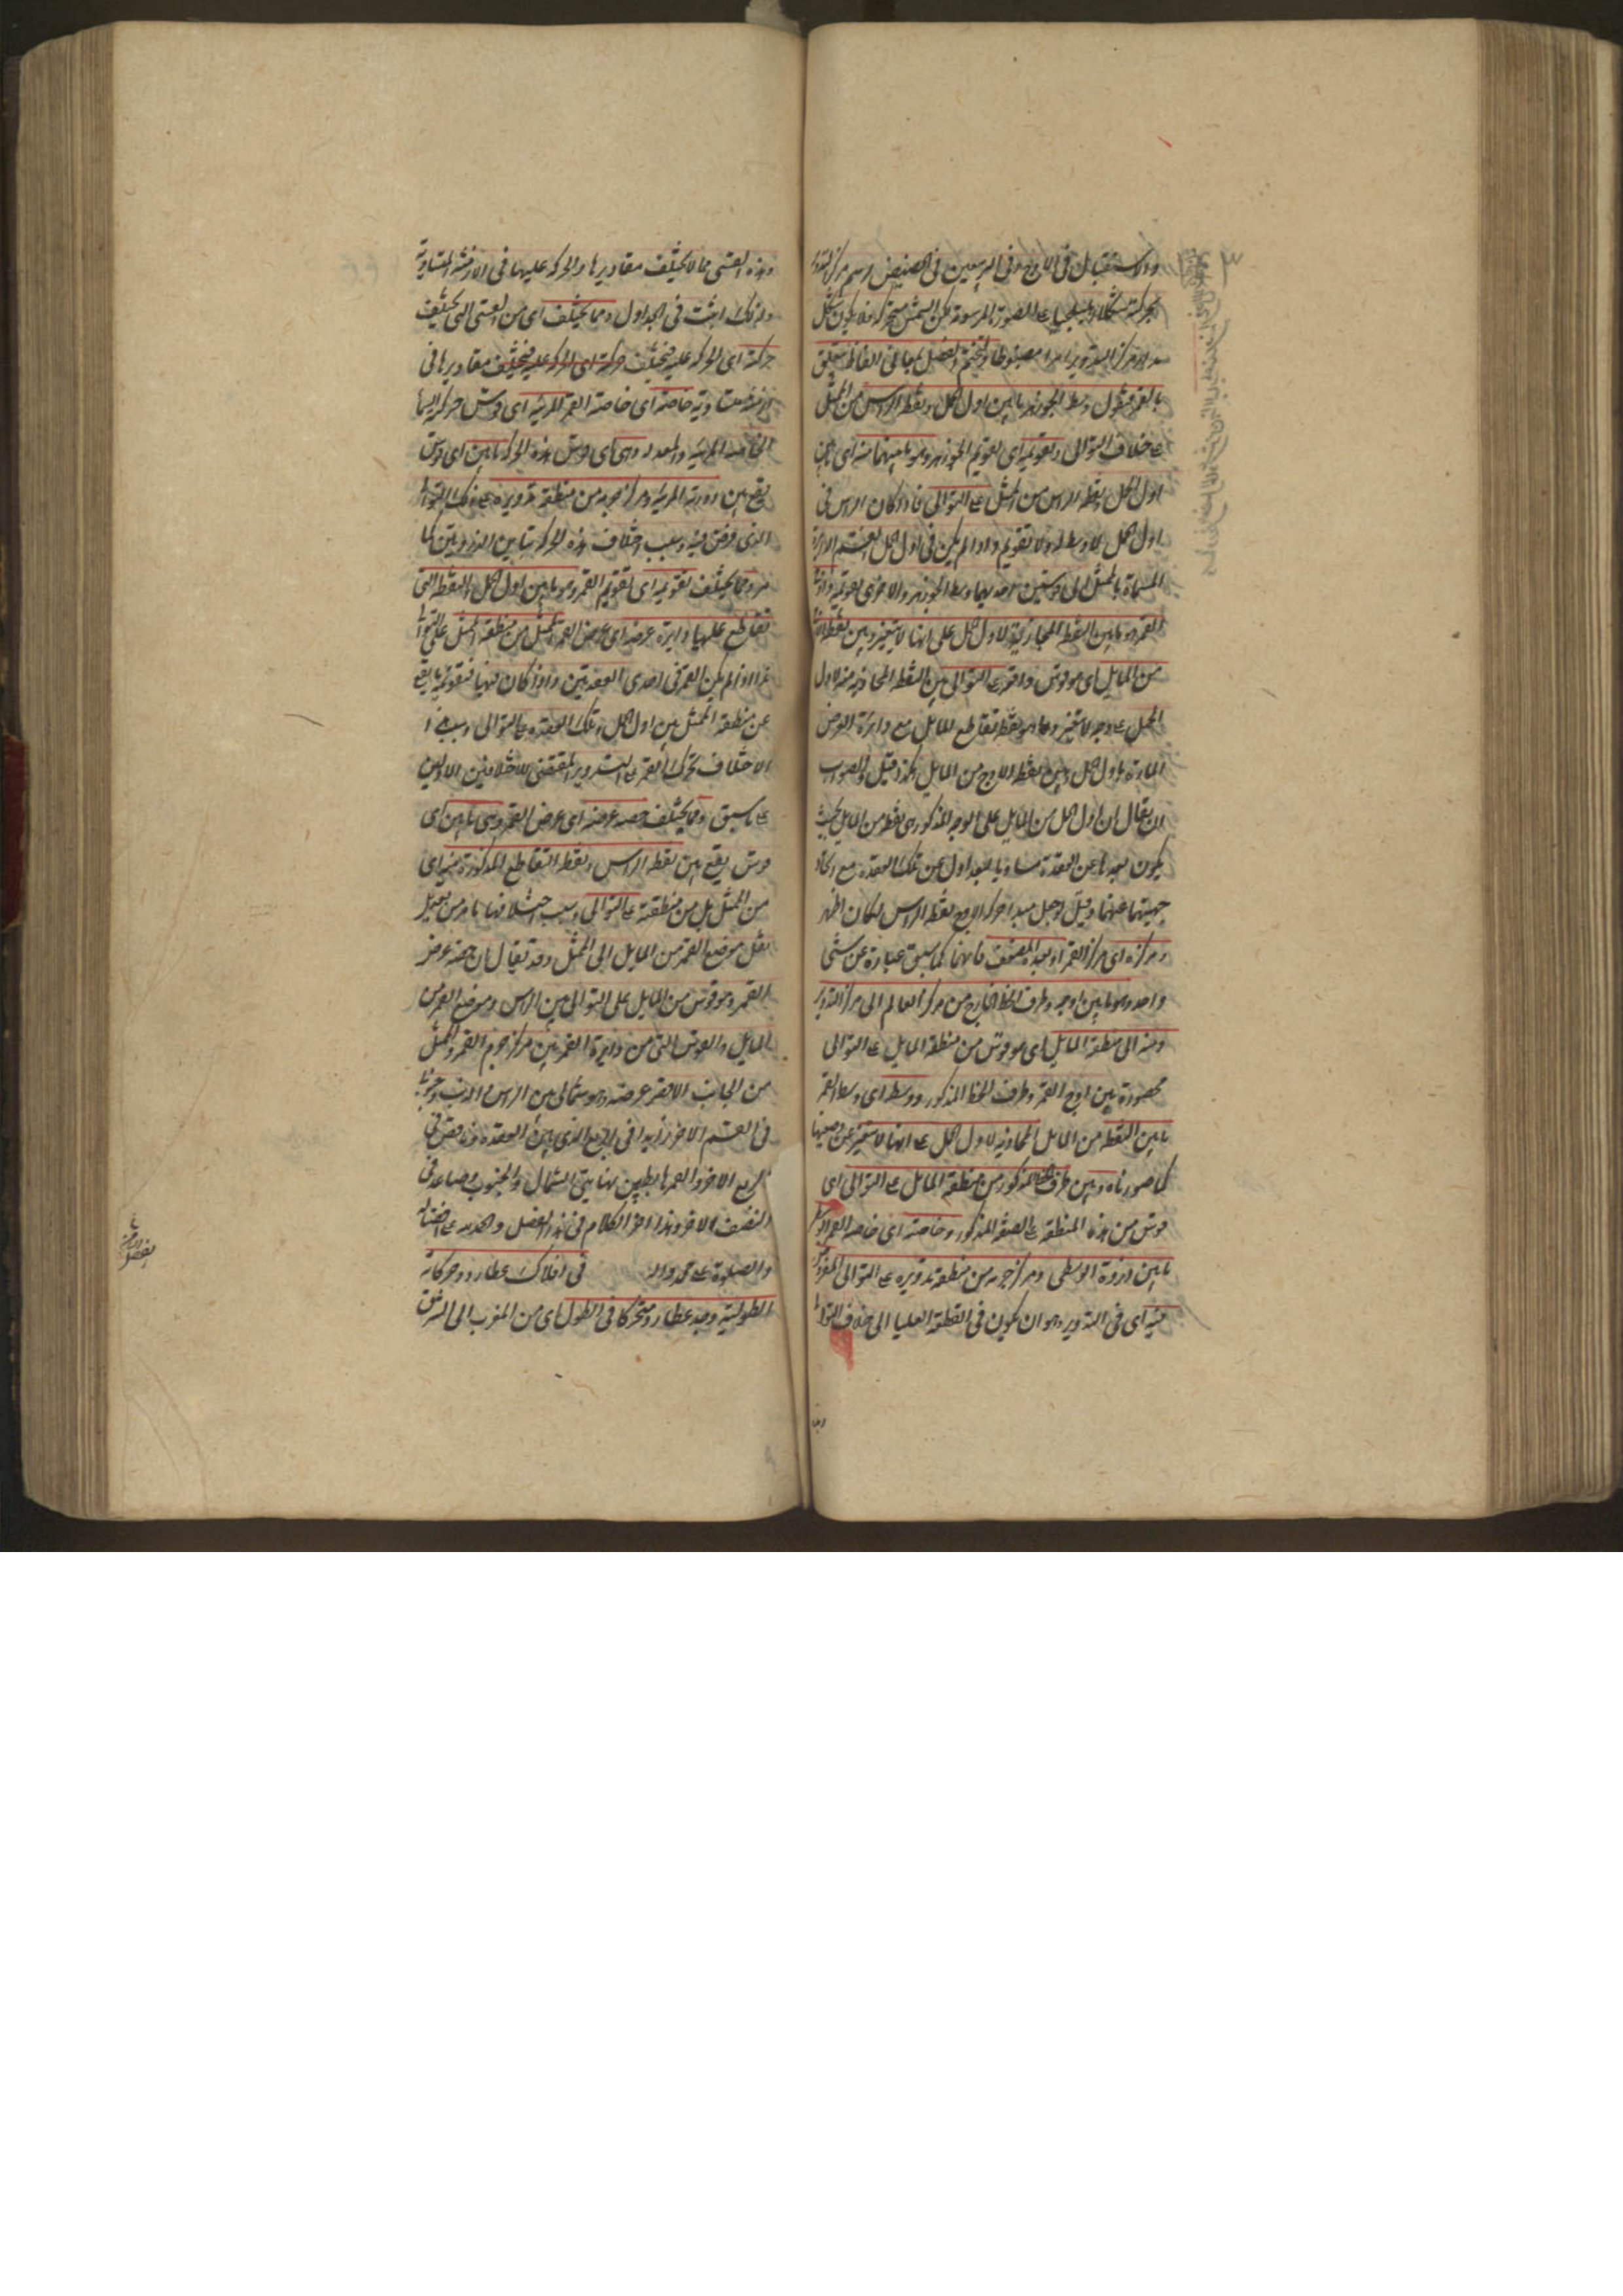 والاستقبال فى الاوج وفى التربيعين فى الحضيض رسم مركز التدوير
بحركته شكلا اهليلجيا على الصورة المرسومة لكن الشمس متحركة فلا يكون شكل
مدار مركز التدوير ابدا مضبوطا ولنختم الفصل بمعانى الفاظ يتعلق
بالقمر فنقول وسط الجوزهر ما بين اول الحمل ونقطة الراس من الممثل
على خلاف التوالى وتقويمه اى تقويم الجوزهر وهو ما بينهما منه اى ما بين
اول الحمل ونقطة الراس من الممثل على التوالى فاذا كان الراس فى
اول الحمل فلا وسط له ولا تقويم واذا لم يكن فى اول الحمل انقسم الدائرة
المسماة بالممثل الى قوسين احدهما وسط الجوزهر والاخرى تقويمه واوج
القمر وهو ما بين النقطة المحاذية لاول الحمل على انها لا يتغير وبين نقطة الاوج
من المايل اى هو قوس واقعة على التوالى بين النقطة المحاذية منه لاول
الحمل على وجه لا يتغير وهى نقطة تقاطع المايل مع دائرة العرض
المارة باول الحمل وبين نقطة الاوج من المايل هكذا قيل والصواب
ان يقال ان اول الحمل من المايل على الوجه المذكور هى نقطة من المايل بحيث
يكون بعدها عن العقدة مساويا لبعد اول الحمل عن تلك العقدة مع اتحاد
جهتيهما عنهما وقيل لو جعل مبدا حركة الاوج نقطة الراس لكان اظهر
ومركزه اى مركز القمر او بعده المضعف فانهما كما سبق عبارة عن شئ
واحد وهو ما بين اوجه وطرف الخط الخارج من مركز العالم الى مركز التدوير
ومنه الى منطقة المايل اى هو قوس من منطقة المايل على التوالى
محصورة بين اوج القمر وطرف الخط المذكور ووسطه اى وسط القمر
ما بين النقطة من المايل المحاذية لاول الحمل على انها لا يتغير عن وضعها
كما صورناه وبين طرف الخط المذكور من منطقة المايل على التوالى اى
قوس من هذه المنطقة على الصفة المذكورة وخاصته اى خاصة القمر الوسطى
ما بين الذروة الوسطى ومركز جرمه من منطقة تدويره على التوالى المفروض
فيه اى فى التدوير وهو ان يكون فى القطعة العليا الى خلاف التوالى
وهذه القسى مما لا يختلف مقاديرها والحركة عليها فى الازمنة المتساوية
ولذلك اثبتت فى الجداول ومما يختلف اى من القسى التى يختلف
حركته اى الحركة عليه فيختلف مقاديرها فى
ازمنة متساوية خاصته اى خاصة القمر المرئية اى قوس حركة يسما
الخاصة المرئية والمعدلة وهى اى قوس هذه الحركة ما بين اى قوس
يقع بين ذروته المرئية ومركز جرمه من منطقة تدويره على ذلك التوالى
الذى فرض فيه وسبب اختلاف هذه الحركة تباين الذروتين كما
مر ومما يختلف تقويمه اى تقويم القمر وهو ما بين اول الحمل والنقطة التى
تقاطع عليها دايرة عرضه اى عرض القمر الممثل من منطقة الممثل على التوالى
هذا اذا لم يكن القمر فى احدى العقدتين واذا كان فيها فتقويمه ما يقع
عن منطقة الممثل بين اول الحمل وتلك العقدة على التوالى وسبب هذا
الاختلاف تحرك القمر على التدوير المقتضى للاختلافين الاولين
على ما سبق ومما يختلف حصة عرضه اى عرض القمر وهى ما بين اى
قوس يقع بين نقطة الراس ونقطة التقاطع المذكورة منه اى
من الممثل بل من منطقته على التوالى وسبب اختلافها ما مر من تعديل
نقل موضع القمر من المايل الى الممثل وقد يقال ان حصة عرض
القمر هو قوس من المايل على التوالى بين الراس وموضع القمر من
المايل والقوس التى من دايرة القمر بين مركز جرم القمر والممثل
من الجانب الاقصر عرضه وهو شمالى بين الراس والذنب وجنوبى
فى القسم الاخر زايدا فى الربع الذى يلى العقدة وناقص فى
الربع الاخر والقمر هابط بين نهايتى الشمال والجنوب وصاعد فى
النصف الاخر وهذا اخر الكلام فى هذا الفصل والحمد لله على افضاله
والصلوة على محمد واله فى افلاك عطارد وحركاته
الطولية وجد عطارد متحركا فى الطول اى من المغرب الى المشرق